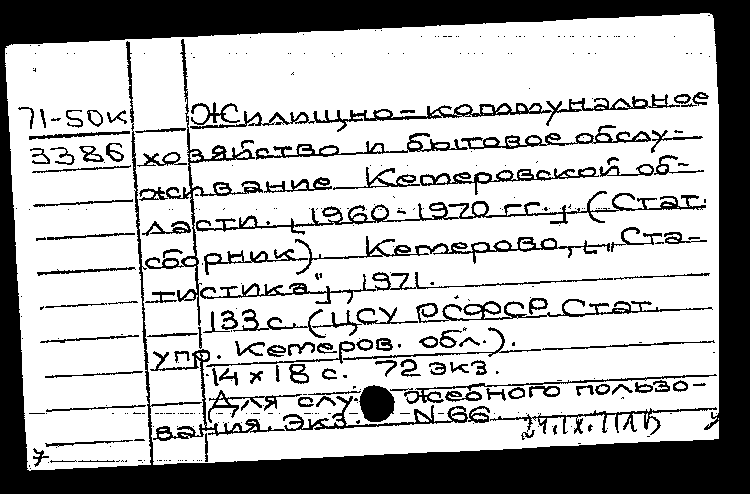 71-50к Жилищно-коммунальное
3386 хозяйство и бытовое обслу-
живание Кемеровской об-
ласти. [1960-1970 гг.] (Стат.
сборник). Кемерово, ["Ста-
тистика"], 1971.
133 с. (ЦСУ РСФСР. Стат.
упр. Кемеров. обл.).
14 х 18 с. 72 экз.
Для служебного пользо-
вания. Экз. N 66.